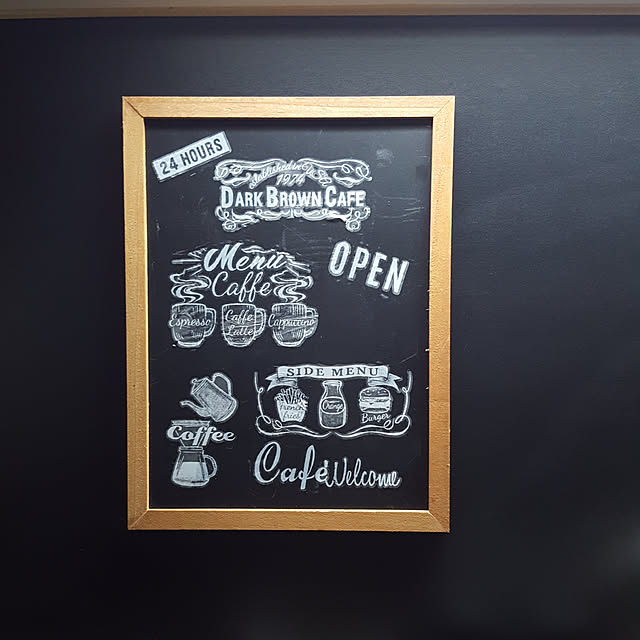 24 HOURS
Established in
1974
DARK BROWN CAFE
OPEN
Menu
Caffe
Espresso
Caffe
Latte
Cappuccino
SIDE MENU
French
fries
Orange
Burger
Coffee
Café Welcome